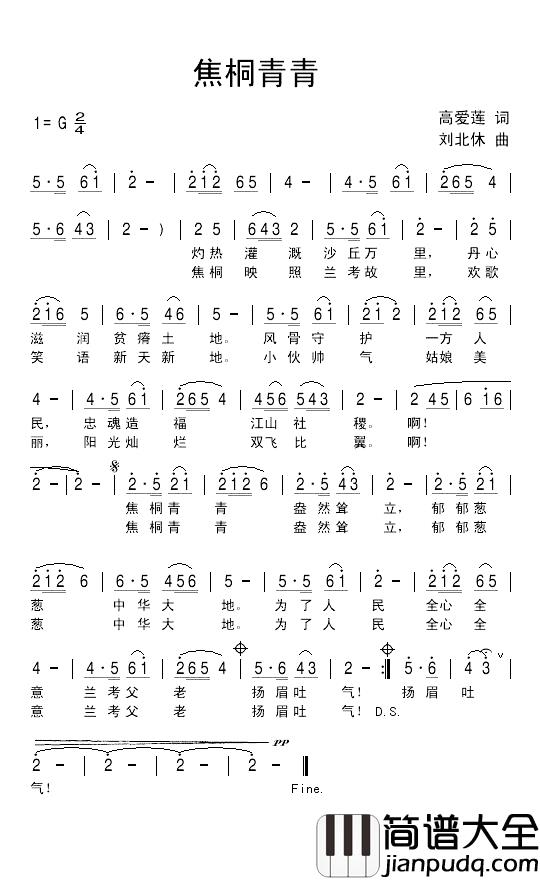 焦桐青青
1= G 2/4
高爱莲 词
刘北休 曲
5·5 61 | 2 - | 212 65 | 4 - | 4·5 61 | 265 4 |
5·6 43 | 2 - ) | 2 5 | 643 2 | 5·5 61 | 2 - | 2 5 |
灼热 灌 溉 沙丘万 里, 丹心
焦桐 映 照 兰考故 里, 欢歌
216 5 | 6·5 46 | 5 - | 5·5 61 | 21 2 | 212 65 |
滋 润 贫瘠土 地。 风骨守 护 一方 人
笑 语 新天新 地。 小伙帅 气 姑娘 美
4 - | 4·5 61 | 265 4 | 456 543 | 2 - | 2 45 | 6 16 |
民, 忠魂造 福 江山 社 稷。 啊!
丽, 阳光灿 烂 双飞 比 翼。 啊!
2 - | 2 - | 2·5 21 | 212 6 | 2·5 43 | 2 - | 2·5 21 |
焦桐青 青 盎然耸 立, 郁郁葱
焦桐青 青 盎然耸 立, 郁郁葱
212 6 | 6·5 456 | 5 - | 5·5 61 | 2 - | 212 65 |
葱 中华大 地。 为了人 民 全心 全
葱 中华大 地。 为了人 民 全心 全
4 - | 4·5 61 | 265 4 | 5·6 43 | 2 - :| 5·6 | 4 3 v |
意 兰考父 老 扬眉吐 气! 扬眉 吐
意 兰考父 老 扬眉吐 气! D.S.
pp
2 - | 2 - | 2 - | 2 - ‖
气! Fine.
简谱大全
jianpudq.com